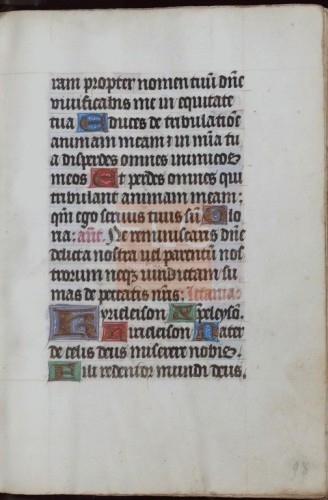 ram propter nomen tuū dñe
viuificabis me in equitate
tua Educes de tribulatiōe
animam meam: in mīa tu
a disperdes omnes inimicos
meos Et perdes omnes qui
tribulant animam meam:
qm̄ ego seruus tuus su Glo
ria: añt. Ne reminiscaris dñe
delicta nostra vel parentū nos
trorum neqꝫ vindictam su
mas de peccatis nr̄is: Letaniae
Kyrieleison Xp̄eleyso.
Kyrieleison Pater
de celis deus miserere nobis.
Fili redemtor mundi deus.
98